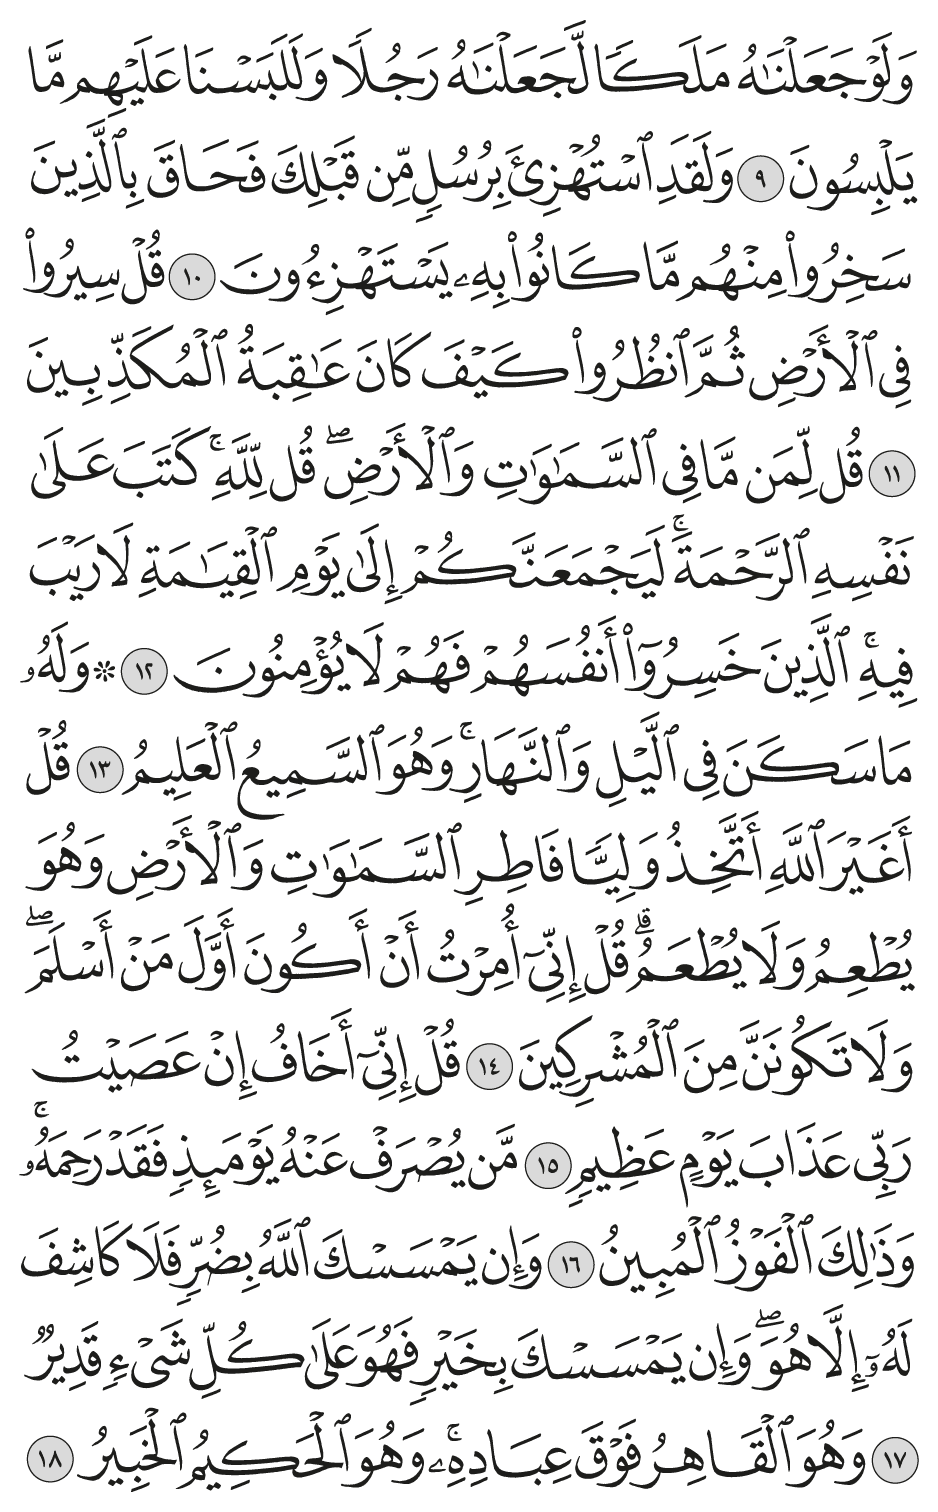 وَلَوْ جَعَلْنَٰهُ مَلَكًا لَّجَعَلْنَٰهُ رَجُلًا وَلَلَبَسْنَا عَلَيْهِم مَّا
يَلْبِسُونَ ٩ وَلَقَدِ ٱسْتُهْزِئَ بِرُسُلٍ مِّن قَبْلِكَ فَحَاقَ بِٱلَّذِينَ
سَخِرُوا۟ مِنْهُم مَّا كَانُوا۟ بِهِۦ يَسْتَهْزِءُونَ ١٠ قُلْ سِيرُوا۟
فِى ٱلْأَرْضِ ثُمَّ ٱنظُرُوا۟ كَيْفَ كَانَ عَٰقِبَةُ ٱلْمُكَذِّبِينَ
١١ قُل لِّمَن مَّا فِى ٱلسَّمَٰوَٰتِ وَٱلْأَرْضِۖ قُل لِّلَّهِۚ كَتَبَ عَلَىٰ
نَفْسِهِ ٱلرَّحْمَةَۚ لَيَجْمَعَنَّكُمْ إِلَىٰ يَوْمِ ٱلْقِيَٰمَةِ لَا رَيْبَ
فِيهِۚ ٱلَّذِينَ خَسِرُوٓا۟ أَنفُسَهُمْ فَهُمْ لَا يُؤْمِنُونَ ١٢ ۞ وَلَهُۥ
مَا سَكَنَ فِى ٱلَّيْلِ وَٱلنَّهَارِۚ وَهُوَ ٱلسَّمِيعُ ٱلْعَلِيمُ ١٣ قُلْ
أَغَيْرَ ٱللَّهِ أَتَّخِذُ وَلِيًّا فَاطِرِ ٱلسَّمَٰوَٰتِ وَٱلْأَرْضِ وَهُوَ
يُطْعِمُ وَلَا يُطْعَمُۗ قُلْ إِنِّىٓ أُمِرْتُ أَنْ أَكُونَ أَوَّلَ مَنْ أَسْلَمَۖ
وَلَا تَكُونَنَّ مِنَ ٱلْمُشْرِكِينَ ١٤ قُلْ إِنِّىٓ أَخَافُ إِنْ عَصَيْتُ
رَبِّى عَذَابَ يَوْمٍ عَظِيمٍ ١٥ مَّن يُصْرَفْ عَنْهُ يَوْمَئِذٍ فَقَدْ رَحِمَهُۥۚ
وَذَٰلِكَ ٱلْفَوْزُ ٱلْمُبِينُ ١٦ وَإِن يَمْسَسْكَ ٱللَّهُ بِضُرٍّ فَلَا كَاشِفَ
لَهُۥٓ إِلَّا هُوَۖ وَإِن يَمْسَسْكَ بِخَيْرٍ فَهُوَ عَلَىٰ كُلِّ شَىْءٍ قَدِيرٌ
١٧ وَهُوَ ٱلْقَاهِرُ فَوْقَ عِبَادِهِۦۚ وَهُوَ ٱلْحَكِيمُ ٱلْخَبِيرُ ١٨